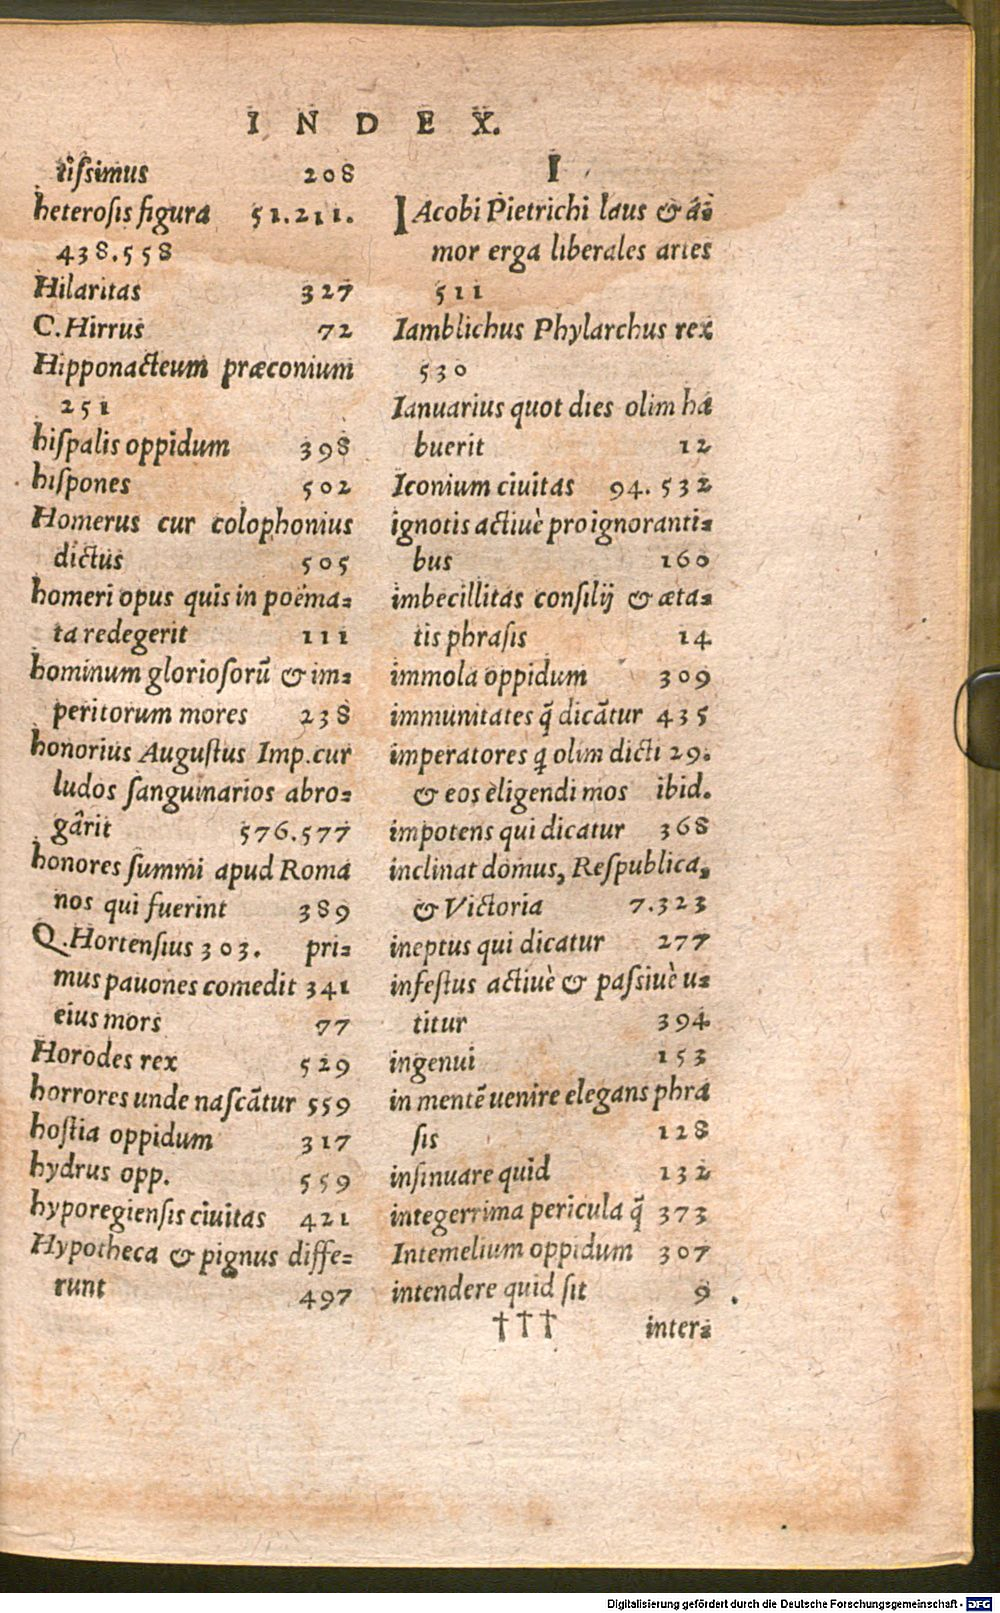 INDEX.
tissimus 208
heterosis figura 51.211.
438.558
Hilaritas 327
C. Hirrus 72
Hipponacteum præconium
251
hispalis oppidum 398
hispones 502
Homerus cur colophonius
dictus 505
homeri opus quis in poëma=
ta redegerit 111
hominum gloriosorũ & im=
peritorum mores 238
honorius Augustus Imp. cur
ludos sanguinarios abro=
gârit 576.577
honores summi apud Roma
nos qui fuerint 389
Q. Hortensius 303. pri=
mus pauones comedit 341
eius mors 77
Horodes rex 529
horrores unde nascãtur 559
hostia oppidum 317
hydrus opp. 559
hyporegiensis ciuitas 421
Hypotheca & pignus diffe=
runt 497
I
IAcobi Pietrichi laus & a=
mor erga liberales artes
511
Iamblichus Phylarchus rex
530
Ianuarius quot dies olim ha
buerit 12
Iconium ciuitas 94. 532
ignotis actiuè pro ignoranti=
bus 160
imbecillitas consilij & æta=
tis phrasis 14
immola oppidum 309
immunitates q̃ dicãtur 435
imperatores q olim dicti 29.
& eos eligendi mos ibid.
impotens qui dicatur 368
inclinat domus, Respublica,
& Victoria 7.323
ineptus qui dicatur 277
infestus actiuè & passiuè u=
titur 394
ingenui 153
in mentẽ uenire elegans phra
sis 128
insinuare quid 132
integerrima pericula q̃ 373
Intemelium oppidum 307
intendere quid sit 9
††† inter=
Digitalisierung gefördert durch die Deutsche Forschungsgemeinschaft - DFG